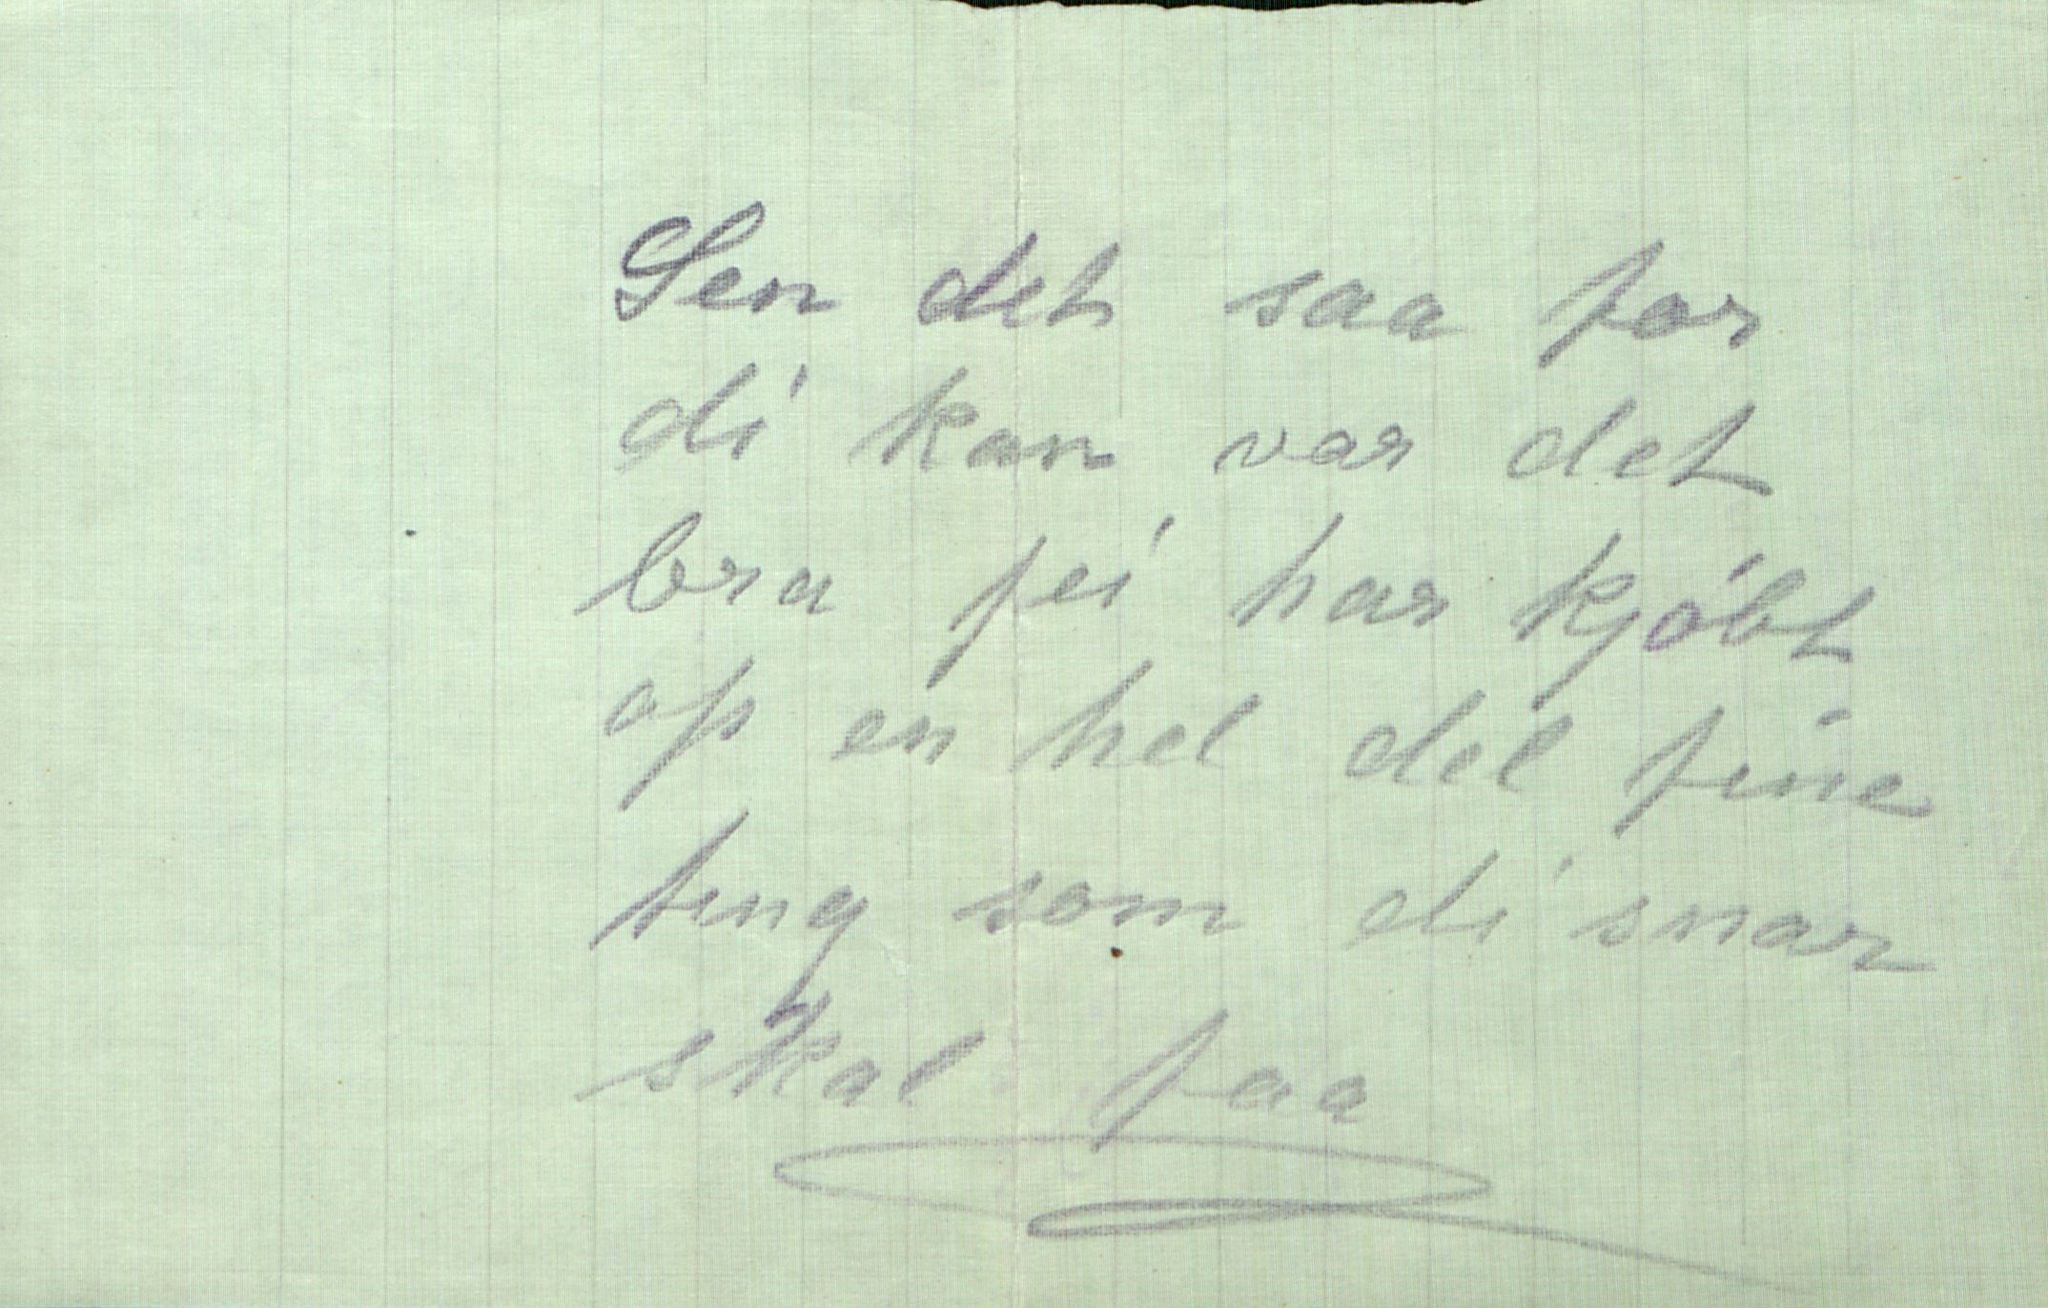 Sen det saa for
di kan var det
bra jei har kjöbt
op en hel del fine
ting som di snar
skal faa